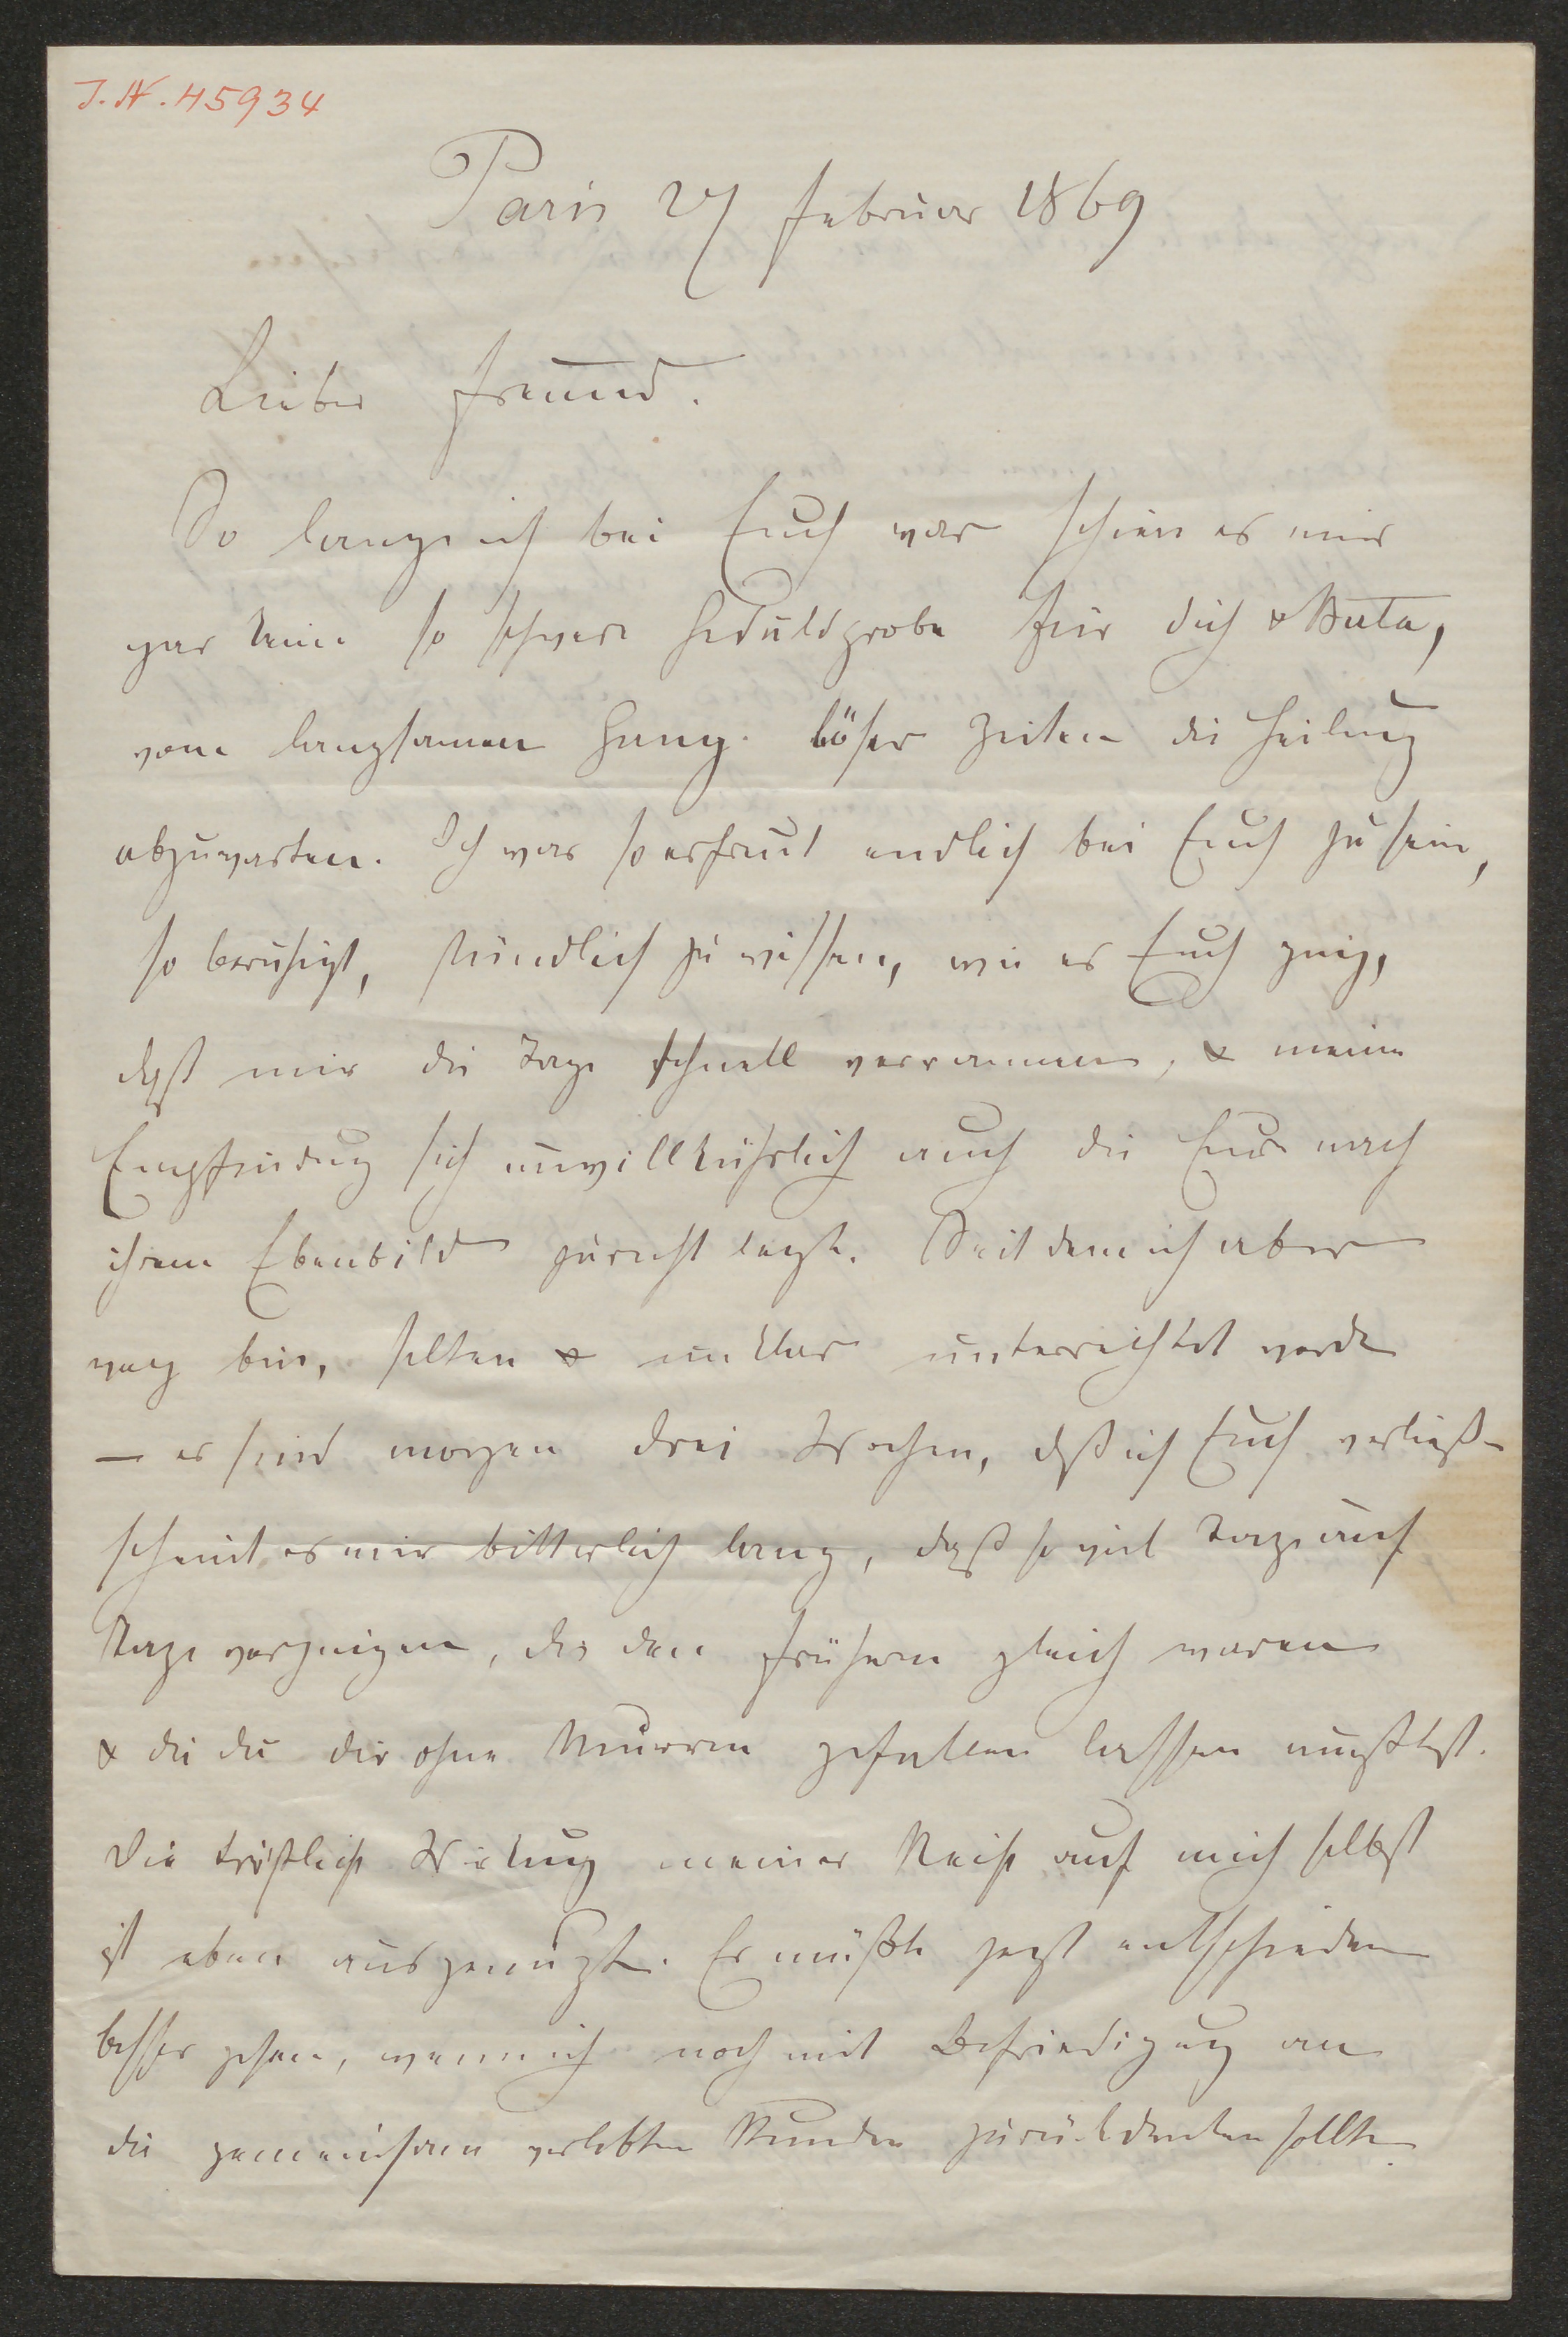 J. N. 45934
Paris 27 Februar 1869
Lieber Freund.
So lange ich bei Euch war schien es mir
gar keine so schwere Geduldprobe für dich &
vom langsamen Gang böser Zeiten die Heilung
abzuwarten. Ich war so erfreut endlich bei Euch zu sein,
so beruhigt, stündlich zu wissen, wie es Euch ging,
daß mir die Tage schnell verrannen, & meine
Empfindung sich unwillkührlich auch die Eure nach
ihrem Ebenbild zurecht legte. Seitdem ich aber
weg bin, selten & unklar unterrichtet werde
— es sind morgen drei Wochen, daß ich Euch verließ —
scheint es mir bitterlich lang, daß so viel Tage auf
Tage vergingen, die den frühern gleich waren
& die du dir ohne Murren gefallen lassen mußtest.
Die tröstliche Wirkung meiner Reise auf mich selbst
ist eben ausgenützt. Es müßte jetzt entschieden
besser gehen, wenn ich noch mit Befriedigung an
die gemeinsam verlebten Stunden zurückdenken sollte.